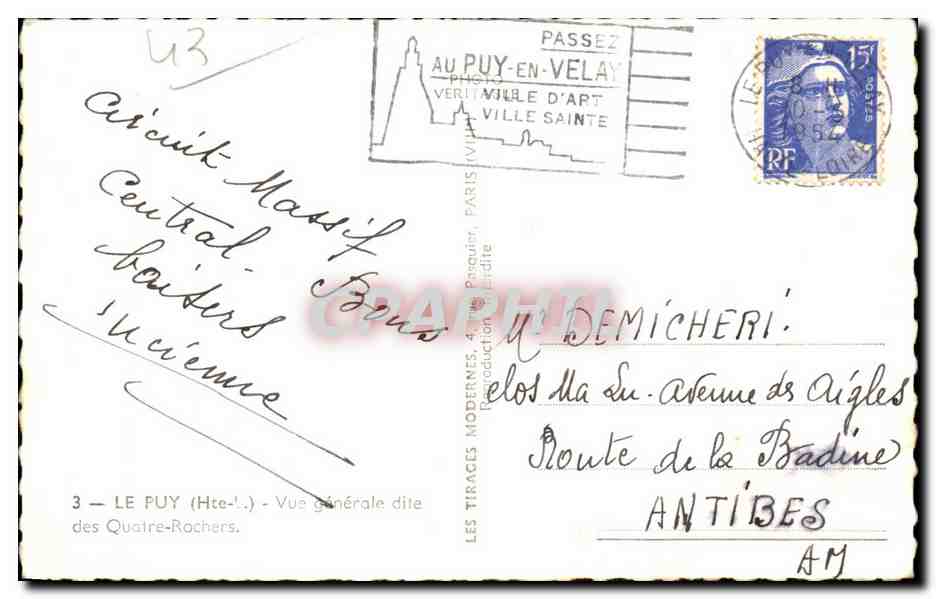 43
PASSEZ
AU PUY-EN-VELAY
VILLE D'ART
VILLE SAINTE
PHOTO
VERITABLE
15F
POSTES
RF
LE PUY
LOIRE
Circuit Massif
Central
Bons
baisers
CPAPHIL
Mr DEMICHERI.
clos Ma Lu. Avenue des Aigles
Route de la Badine
ANTIBES
AM
3 — LE PUY (Hte-L.) - Vue générale dite
des Quatre-Rochers.
LES TIRAGES MODERNES, 4, rue Pasquier, PARIS (VIII
Reproduction interdite